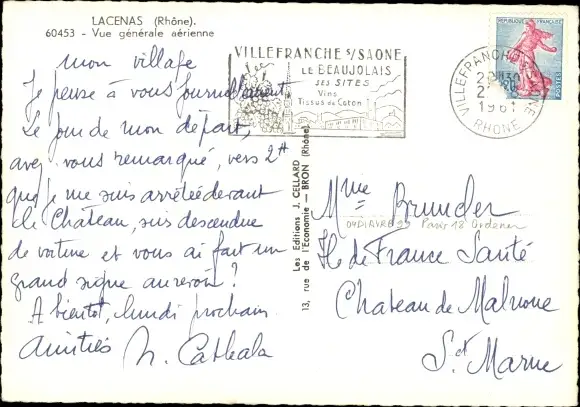 LACENAS (Rhône).
60453 - Vue générale aérienne
mon village
Je pense à vous journellement.
Le jour de mon départ,
avez vous remarqué, vers 2H
que je me suis arrêtée devant
le Château, suis descendue
de voiture et vous ai fait un
grand signe au revoir ?
A bientôt, lundi prochain
Amitiés
VILLEFRANCHE S/SAONE
LE BEAUJOLAIS
SES SITES
Vins
Tissus de Coton
REPUBLIQUE FRANÇAISE
POSTES
VILLEFRANCHE
1961
RHONE
Les Editions J. CELLARD
13, rue de l'Economie - BRON (Rhône)
Mme Brunder
Paris 18 Ordener
Ile de France Santé
Chateau de Malnoue
S. et Marne